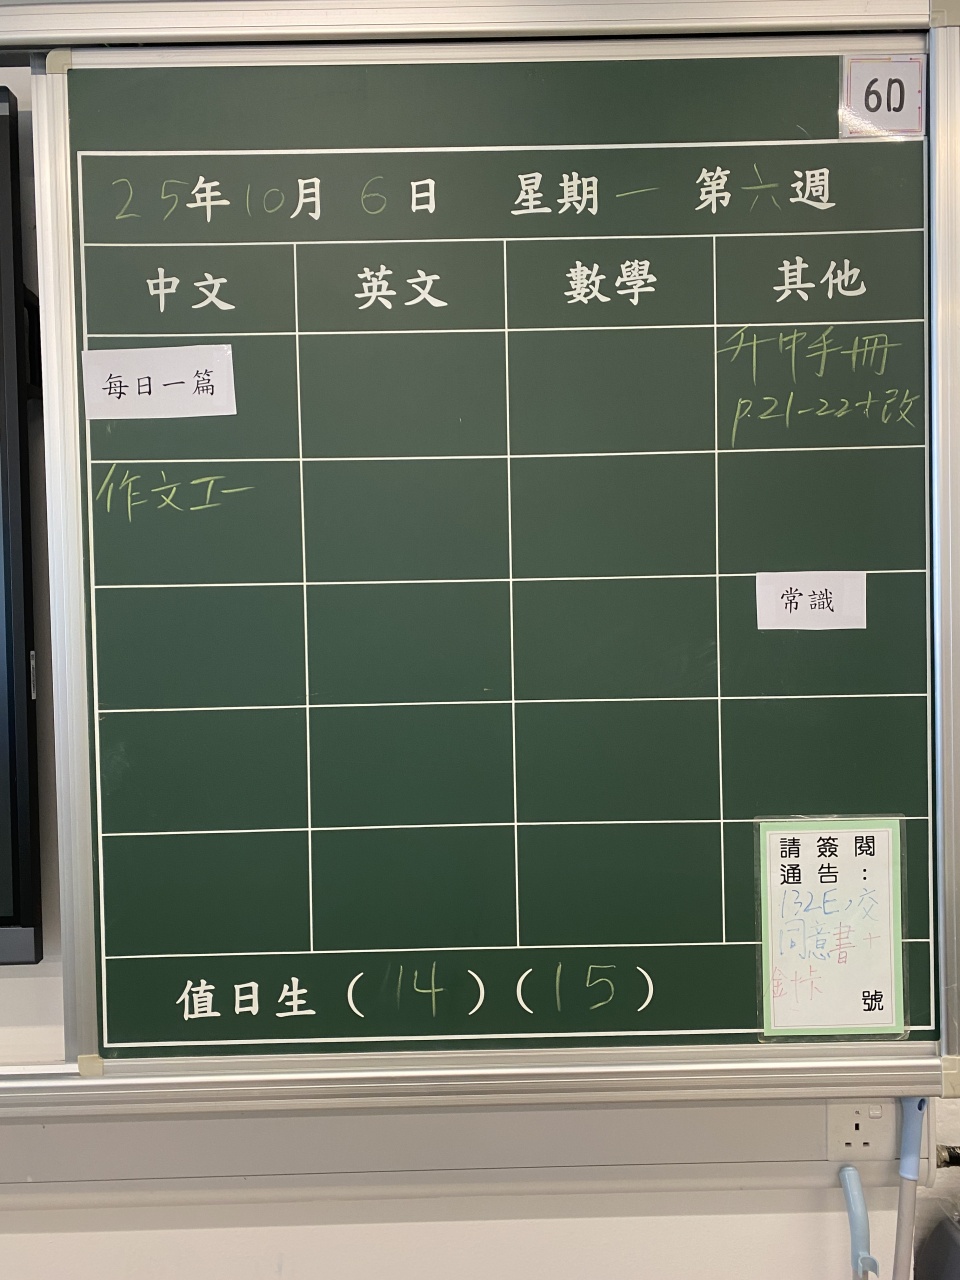 6D
25年10月6日 星期一 第六週
中文 英文 數學 其他
每日一篇
升中手冊
p.21-22才改
作文工一
常識
請簽閱
通告:
132E,交
同意書+
針卡
號
值日生(14)(15)